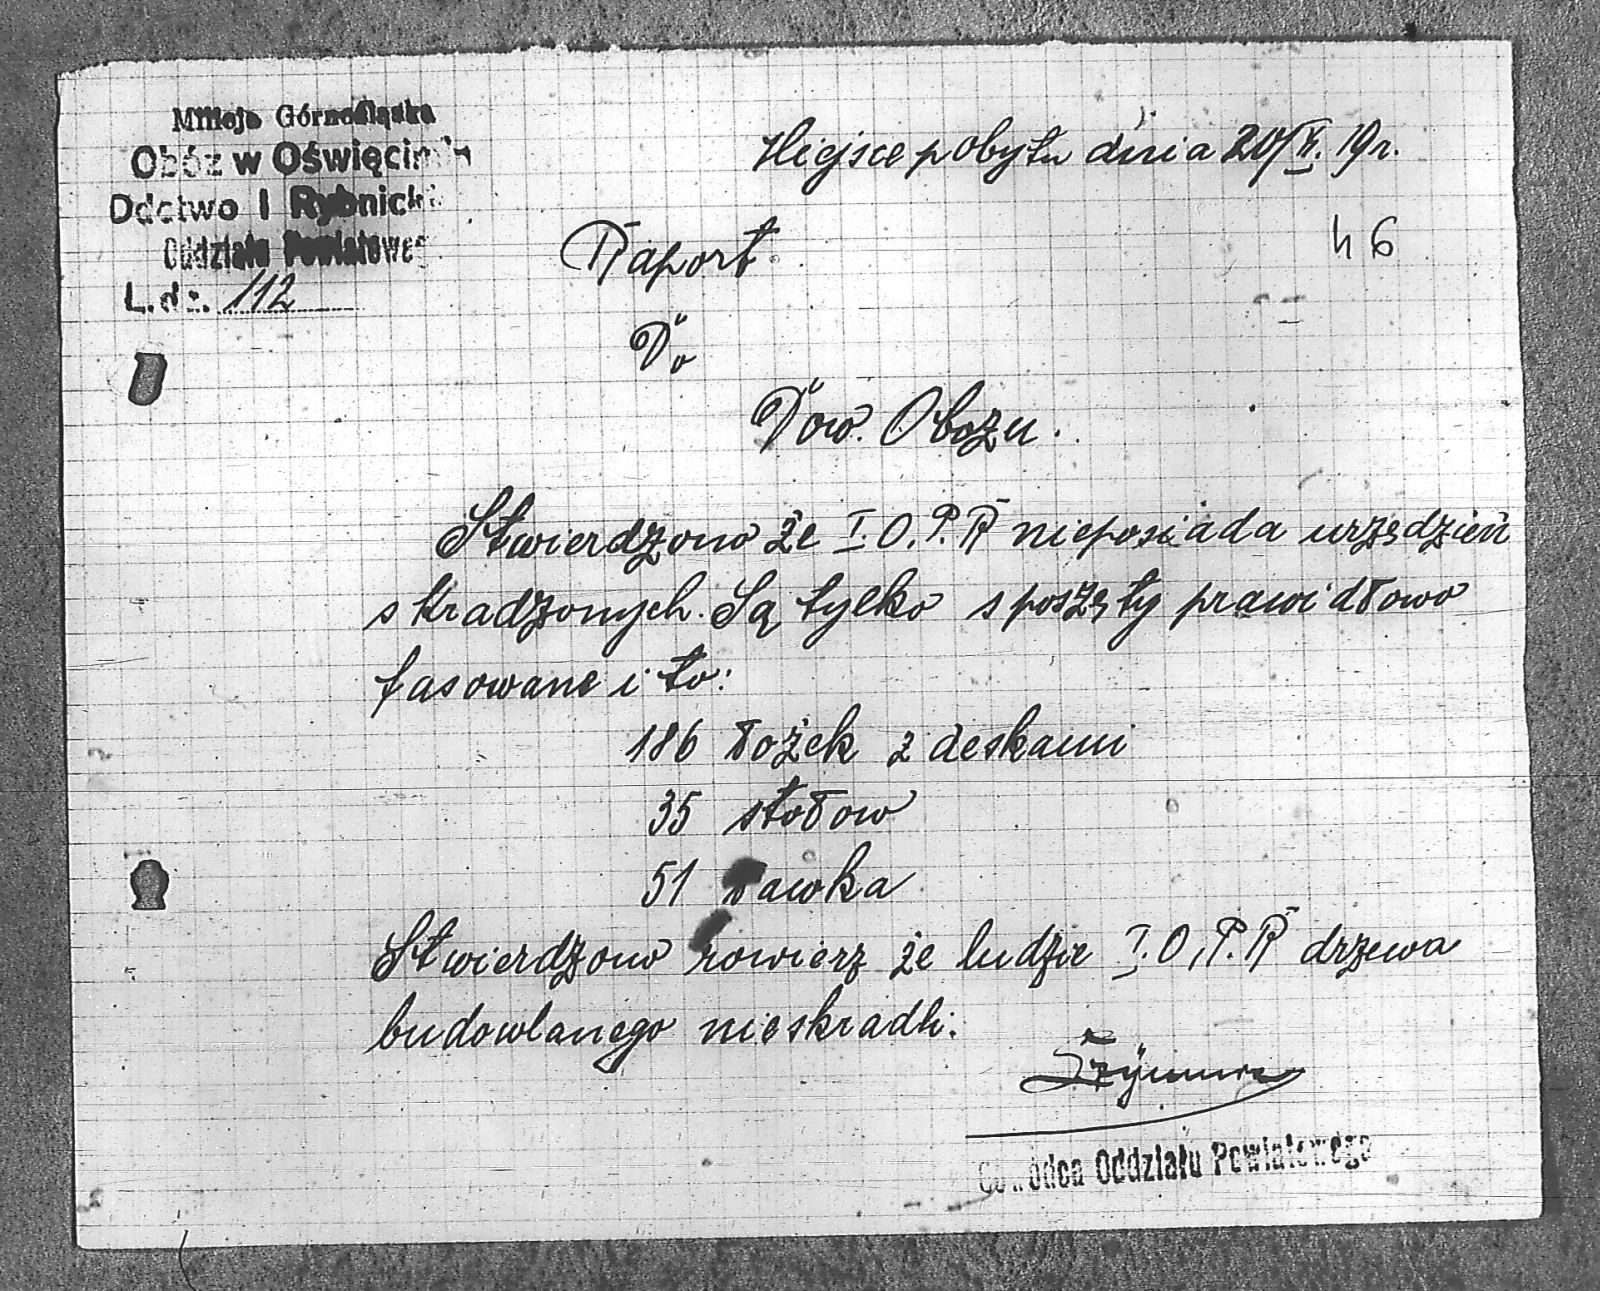 Milicja Górnośląska
Obóz w Oświęcimiu
Ddctwo I Rybnicki
Oddziału Powiatoweg
L.dz. 112
Miejsce pobytu dnia 20/X. 19r.
46
Raport
Do
Dow. Obozu.
Stwierdzono że I.O.P.R nieposiada urzędzień
skradzonych. Są tylko sposzęty prawidłowo
fasowane i to:
186 łożek z deskami
35 stołow
51 ławka
Stwierdzono rowierz że ludzie I.O.P.R drzewa
budowlanego nieskradli.
Dowódca Oddziału Powiatowego